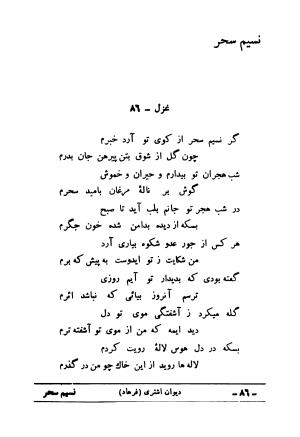 نسیم سحر
غزل - ۸۶
گر نسیم سحر از کوی تو آرد خبرم
چون گل از شوق بتن پیرهن جان بدرم
شب هجران تو بیدارم و حیران و خموش
گوش بر نالهٔ مرغان بامید سحرم
در شب هجر تو جانم بلب آید تا صبح
بسکه از دیده بدامن شده خون جگرم
هر کس از جور عدو شکوه بیاری آرد
من شکایت ز تو ایدوست به پیش که برم
گفته بودی که بدیدار تو آیم روزی
ترسم آنروز بیائی که نباشد اثرم
گله میکرد ز آشفتگی موی تو دل
دید ایمه که من از موی تو آشفته ترم
بسکه در دل هوس لالهٔ رویت کردم
لاله ها روید از این خاک چو من در گذرم
- ۸۶ -
دیوان اشتری (فرهاد)
نسیم سحر